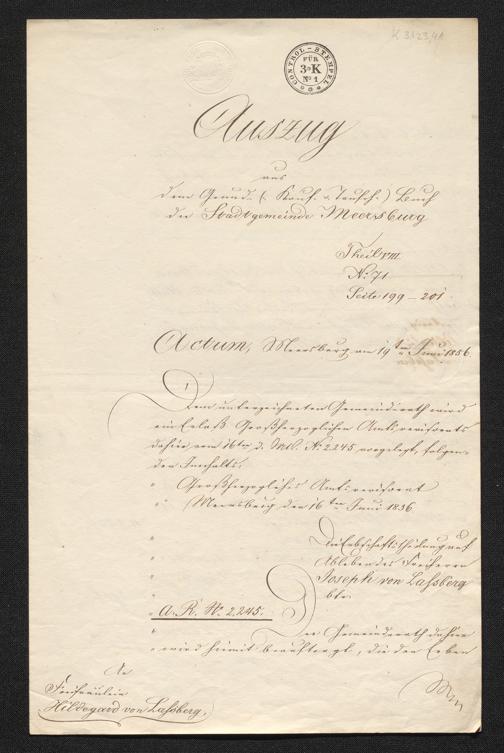 K 3123,4A
CONTROL-STEMPEL
FÜR
3 K
No 1
Auszug
aus
dem Grund- (: Kauf- u. Tausch-:) Buch
der Stadtgemeinde Meersburg
Theil VIII.
No. 71
Seite 199 - 201
Actum, Meersburg am 19ten Juni 1856.
Dem unterzeichneten Gemeinderath wird
ein Erlaß Großherzoglichen Amtsrevisorats
dahier vom 16ten d. Mts. No. 2245 vorgelegt, folgen-
den Innhalts:
" Großherzogliches Amtsrevisorat
" Meersburg den 16ten Juni 1856.
Die Erbschaftstheilung auf
Ableben des Freiherrn
Joseph von Laßberg
btr.
" A. R. No. 2245.
" Der Gemeinderath dahier
" wird hiemit beauftragt, die den Erben
An
Freifräulein
Hildegard von Laßberg.